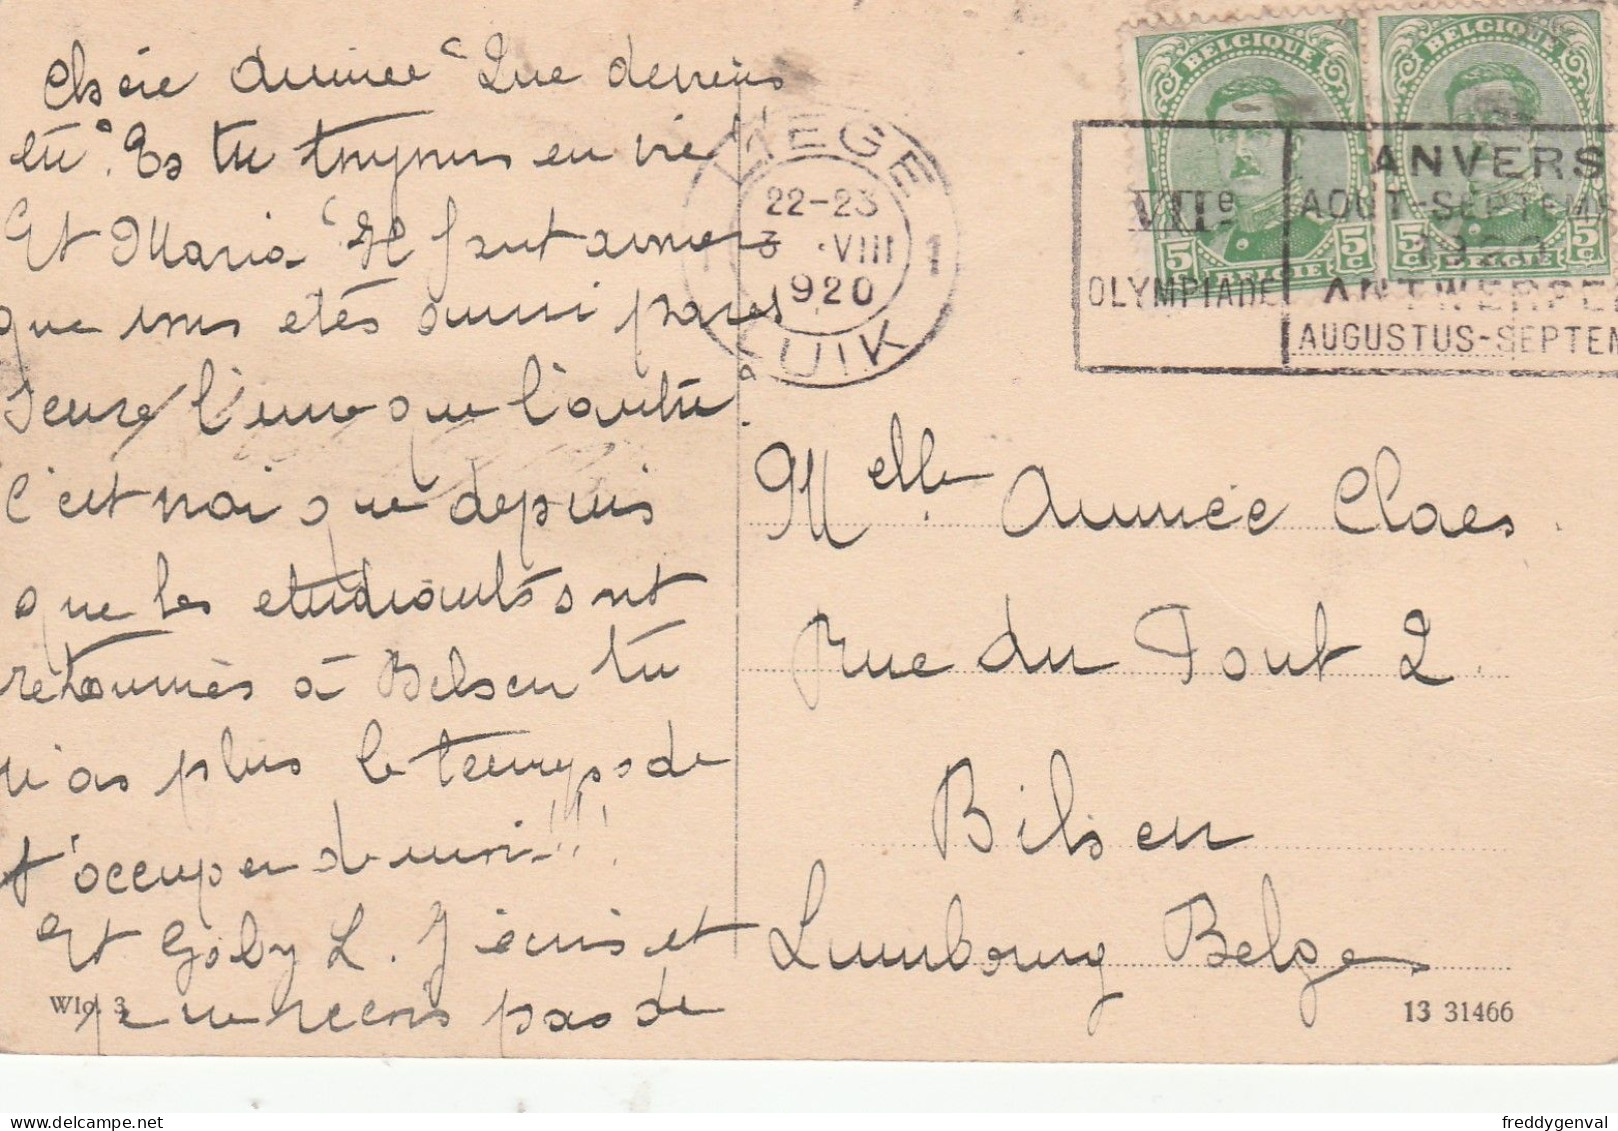 Chère Aimée Que deviens
tu. Es tu toujours en vie
Et Maria Il faut avouer
que vous etes aussi pares
seuse l'une que l'autre.
C'est vrai que depuis
que les etudiants sont
retournés à Bilsen tu
n'as plus le temps de
t'occuper de moi!!!
Et Gaby L. J'écris et
je ne recois pas de
Wlo. 3
BELGIQUE
5c 5c
BELGIE
BELGIQUE
5c 5c
BELGIE
LIEGE
22-23
3 VIII
920
1
LUIK
VIIe
OLYMPIADE
ANVERS
AOUT-SEPTEMB
1920
ANTWERPE
AUGUSTUS-SEPTEM
Melle Aimée Claes
Rue du Pont 2.
Bilsen
Limbourg Belge
13 31466
freddygenval